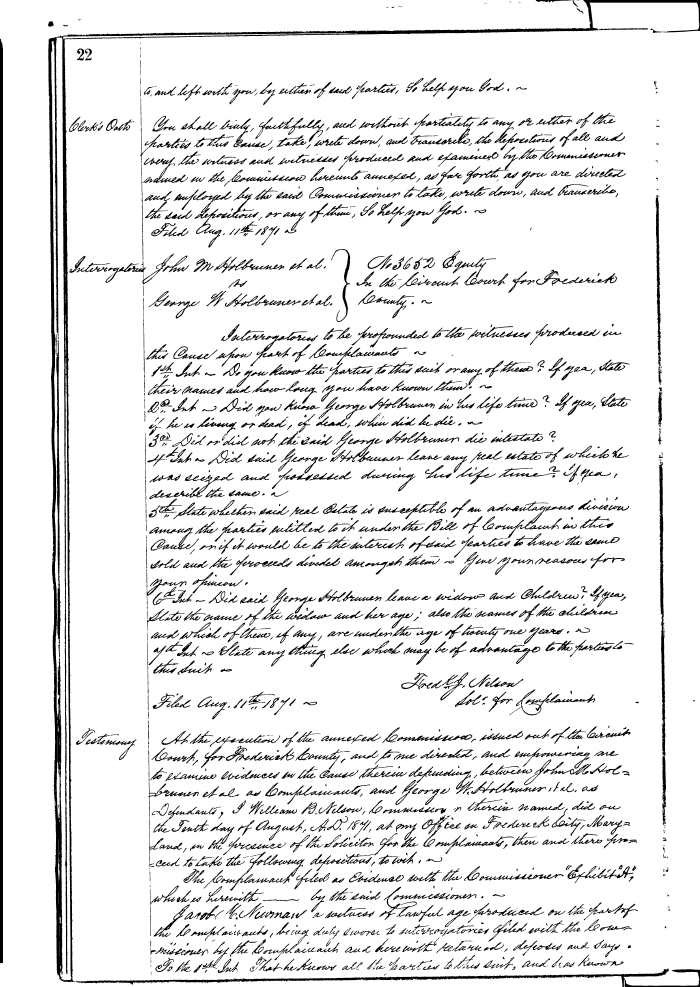 22
to, and left with you, by either of said parties, So help you God. ~
Clerk's Oath You shall truly, faithfully, and without partiality to any or either of the
parties to this Cause, take, write down, and transcribe, the depositions of all and
every, the witness and witnesses produced and examined by the Commissioner
named in the Commission hereunto annexed, as far forth, as you are directed
and employed by the said Commissioner to take, write down, and transcribe,
the said depositions, or any of them, So help you God. ~
Filed Aug. 11th 1871 ~
Interrogatories John M Holbruner et al. No 3652 Equity
vs In the Circuit Court for Frederick
George W Holbruner et al. County. ~
Interrogatories to be propounded to the witnesses produced in
this Cause upon part of Complainants ~
1st Int ~ Do you know the parties to this suit or any of them? If yea, State
their names and how long you have known them. ~
2nd Int ~ Did you know George Holbruner in his life time? If yea, State
if he is living or dead, if dead, when did he die. ~
3rd Did or did not the said George Holbruner die intestate?
4th Int ~ Did said George Holbruner leave any real estate of which he
was seized and possessed during his life time? If yea,
describe the same. ~
5th State whether said real Estate is susceptible of an advantageous division
among the parties entitled to it under the Bill of Complaint in this
Cause, or if it would be to the interest of said parties to have the same
sold and the proceeds divided amongst them ~ Give your reasons for
your opinion.
6th Int ~ Did said George Holbruner leave a widow and Children? If yea,
State the name of the widow and her age; also the names of the children
and which of them, if any, are under the age of twenty one years. ~
7th Int ~ State any thing else which may be of advantage to the parties to
this suit ~
Fredk J. Nelson
Filed Aug. 11th 1871 ~ Solr. for Complainant
Testimony At the execution of the annexed Commission, issued out of the Circuit
Court, for Frederick County, and to me directed, and empowering me
to examine evidences in the Cause therein depending, between John M. Hol=
=bruner et al as Complainants, and George W. Holbruner, et al. as
Defendants, I William B. Nelson, Commissioner therein named, did on
the Tenth day of August, A.D. 1871, at my Office in Frederick City, Mary=
=land, in the presence of the Solicitor for the Complainants, then and there pro=
=ceed to take the following depositions, to wit. ~
The Complainant filed as Evidence with the Commissioner "Exhibit A",
which is herewith —— by the said Commissioner. ~
Jacob Newman a witness of lawful age produced on the part of
the Complainants, being duly sworn to interrogatories filed with the Com=
=missioner by the Complainant and herewith returned, deposes and says.
To the 1st Int That he knows all the parties to this suit, and has known